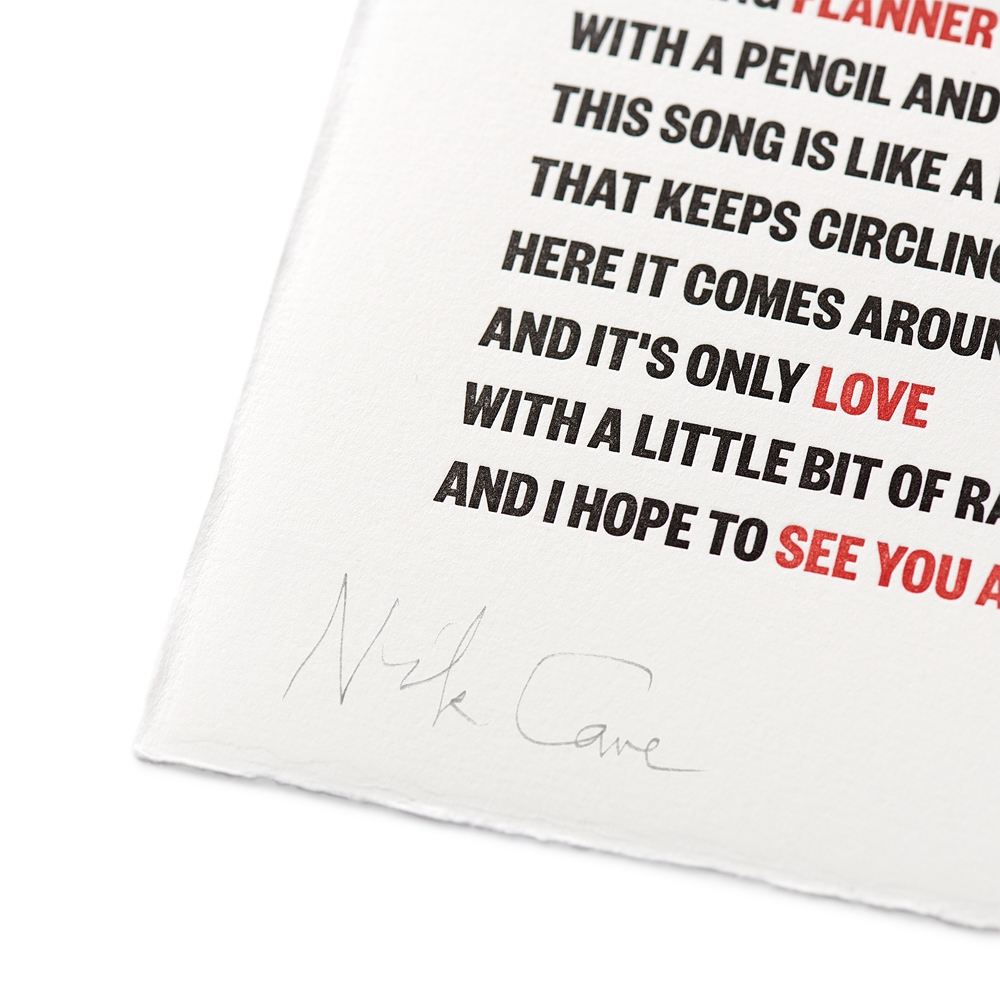 PLANNER
WITH A PENCIL AND
THIS SONG IS LIKE A
THAT KEEPS CIRCLING
HERE IT COMES AROUN
AND IT'S ONLY LOVE
WITH A LITTLE BIT OF RA
AND I HOPE TO SEE YOU A
Nick Cave